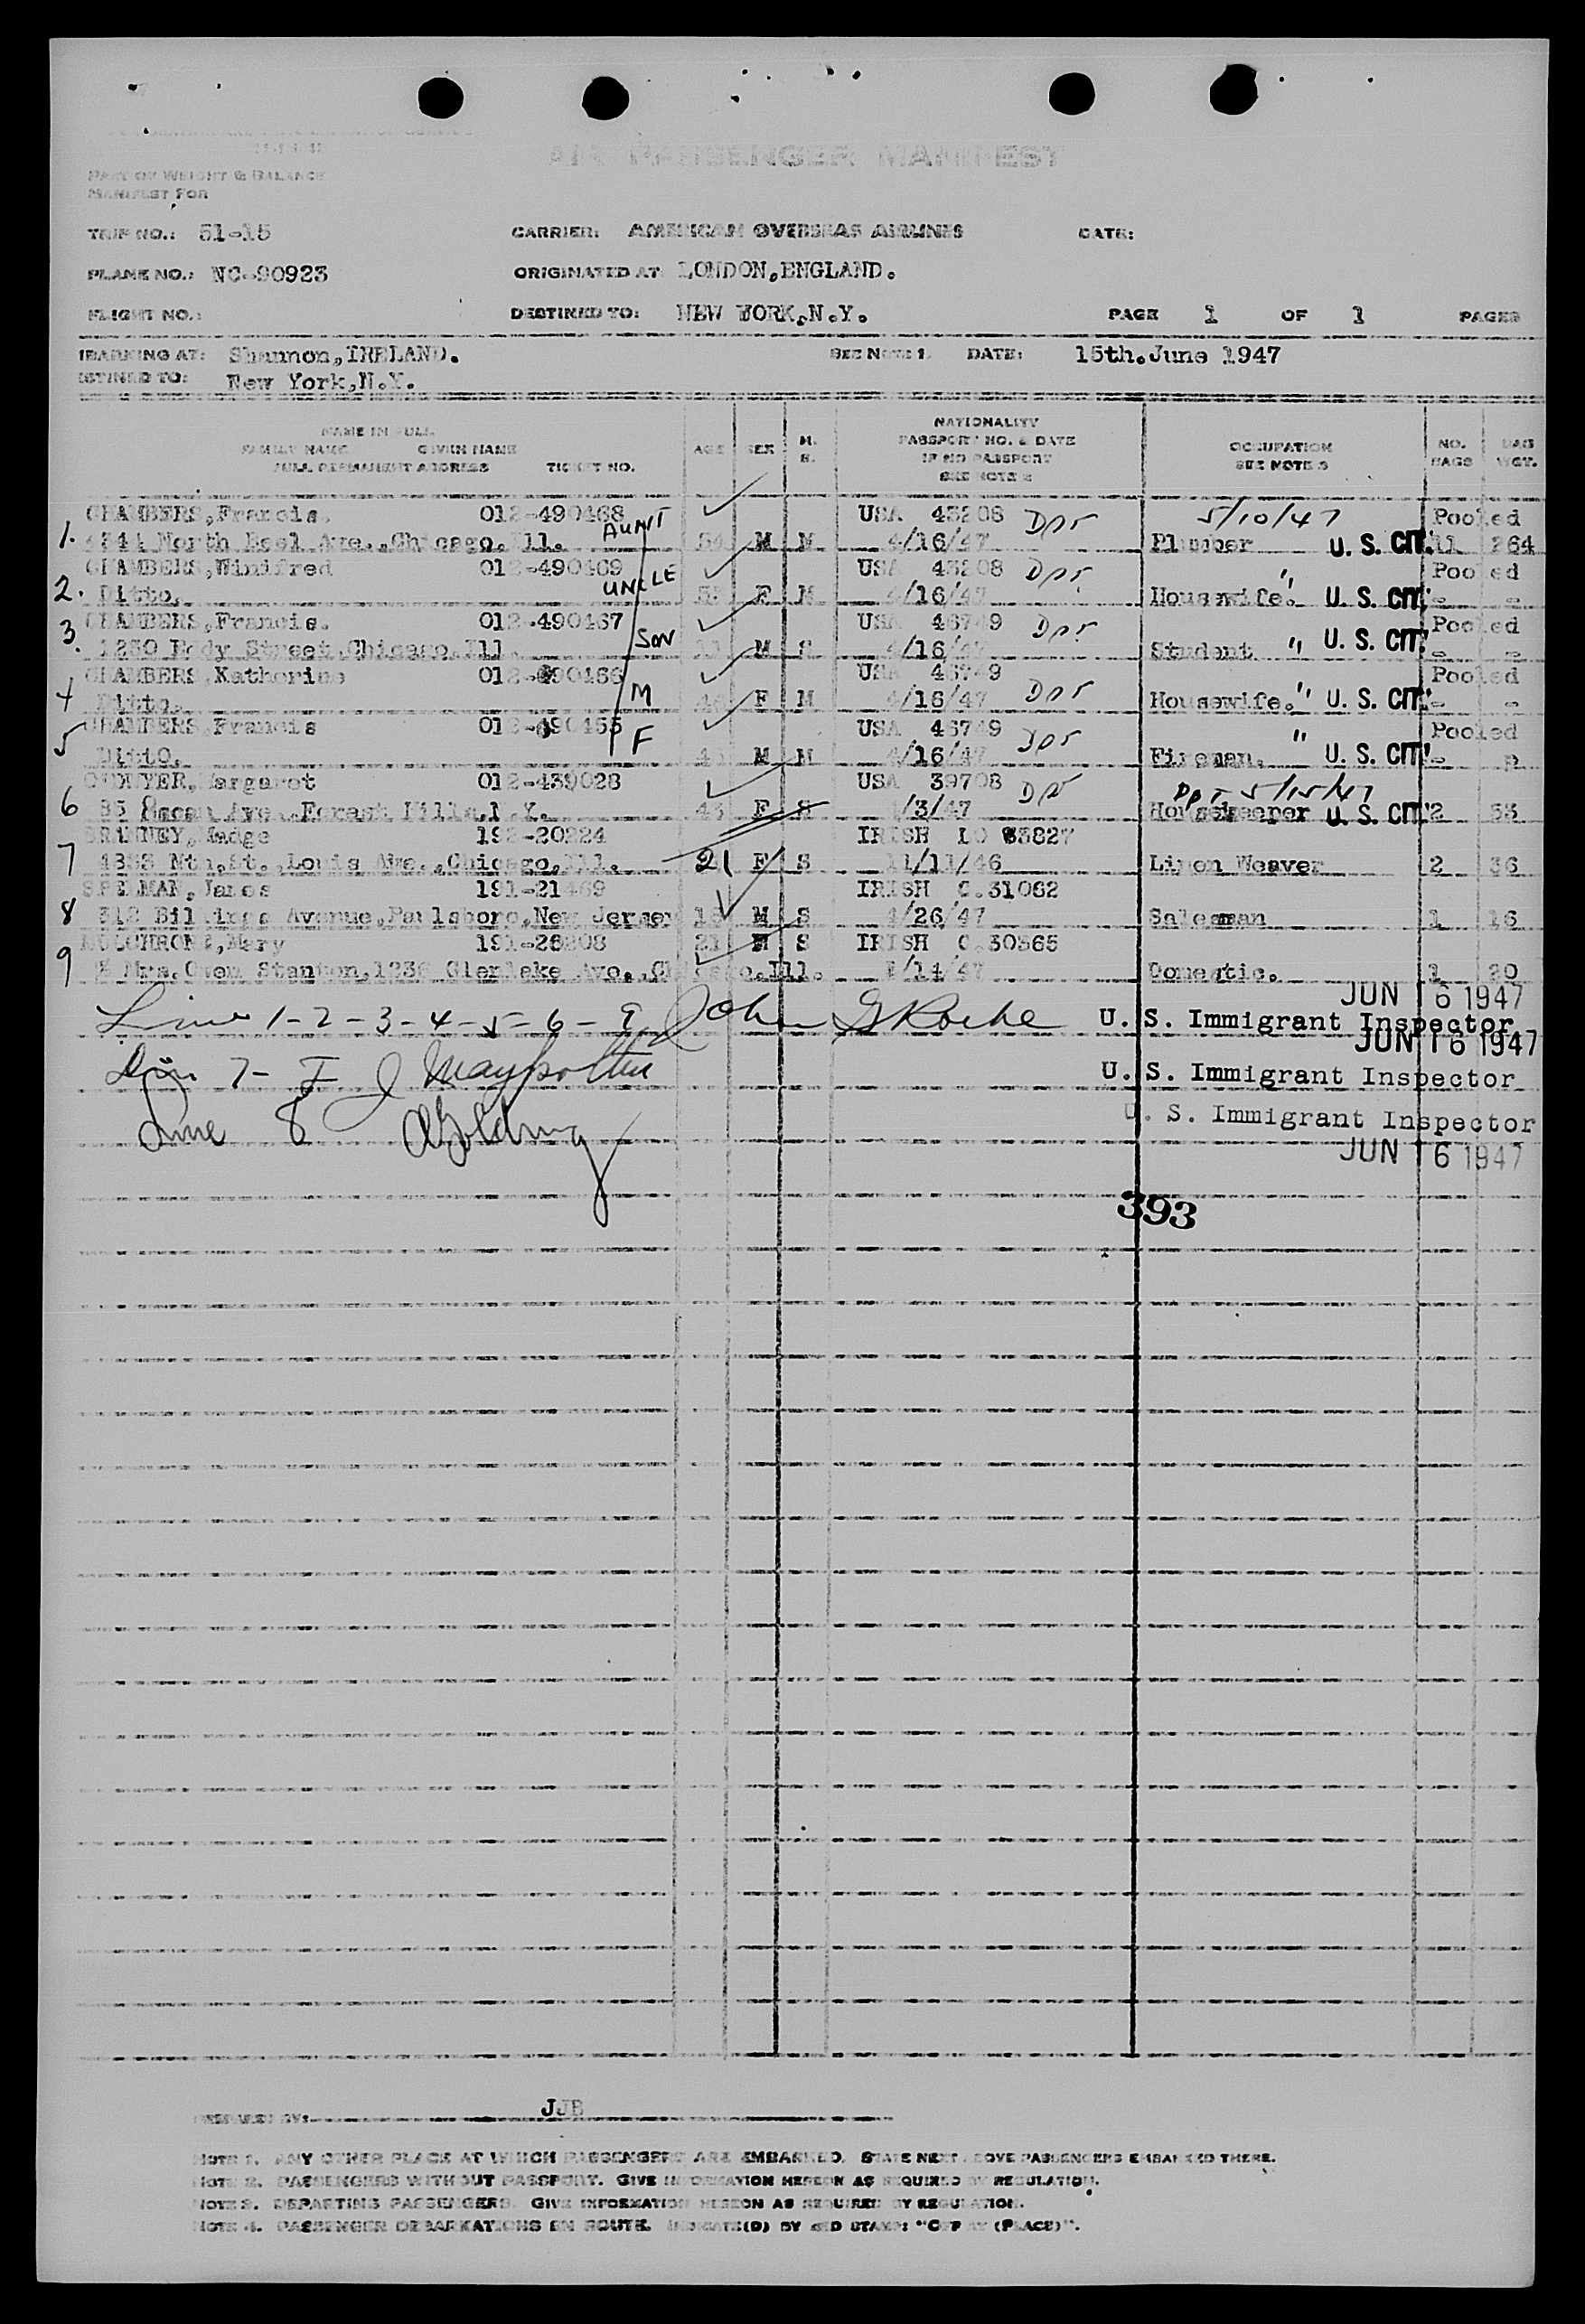 AIR PASSENGER MANIFEST
PART OF WEIGHT & BALANCE
MANIFEST FOR
TRIP NO.: 51-15 CARRIER: AMERICAN OVERSEAS AIRLINES DATE:
PLANE NO.: NC-90923 ORIGINATED AT LONDON,ENGLAND.
FLIGHT NO.: DESTINED TO: NEW YORK,N.Y. PAGE 1 OF 1 PAGES
MBARKING AT: Shannon,IRELAND. SEE NOTE 1. DATE: 15th.June 1947
ESTINED TO: New York,N.Y.
NAME IN FULL NATIONALITY
FAMILY NAME GIVEN NAME AGE SEX M. S. PASSPORT NO. & DATE OCCUPATION NO. BAG
FULL PERMANENT ADDRESS TICKET NO. IF NO PASSPORT SEE NOTE 3 BAGS WGT.
SEE NOTE 2
CHAMBERS,Francis. 012-490468 AUNT USA 43208 Dpr 5/10/47 Pooled
1. North Ave.,Chicago,Ill. 54 M M 4/16/47 Plumber U. S. CIT. 11 264
CHAMBERS,Winifred 012-490469 UNCLE USA 43208 Dpr " Pooled
2. Ditto. F M 4/16/47 Housewife. U. S. CIT. - -
CHAMBERS,Francis. 012-490467 SON USA 46749 Dpr Pooled
3. 1230 Street,Chicago,Ill. 11 M S 4/16/47 Student " U. S. CIT. - -
CHAMBERS,Katherine 012-490466 USA 46749 Dpr Pooled
4 Ditto. M 46 F M 4/16/47 Housewife. " U. S. CIT. - -
CHAMBERS,Francis 012-490465 USA 46749 Dpr " Pooled
5 Ditto. F M M 4/16/47 Fireman. U. S. CIT. -
O'DWYER,Margaret 012-439028 USA 39708 Dpr Dpr 5/15/47
6 Ave.,Forest Hills,N.Y. 43 F S /3/47 Housekeeper U. S. CIT. 2 53
Madge 192-20224 IRISH 33827
7 Nth,St.,Louis Ave.,Chicago,Ill. 21 F S 11/11/46 Linen Weaver 2 36
SPELMAN,James 191-21469 IRISH C.31062
8 312 Billings Avenue,Paulsboro,New Jersey M S 4/26/47 Salesman 1 16
MULCHRONE,Mary 191-26208 21 S IRISH C.30565
9 Mrs.Owen Stanton,1236 Glenlake Ave.,Chicago,Ill. /14/47 Domestic. 1 20
JUN 16 1947
Line 1-2-3-4-5-6-9 John G Roche U. S. Immigrant Inspector
JUN 16 1947
Line 7- F J U. S. Immigrant Inspector
Line 8 Golding U. S. Immigrant Inspector
JUN 16 1947
393
PREPARED BY: JJB
NOTE 1. ANY OTHER PLACE AT WHICH PASSENGERS ARE EMBARKED. STATE NEXT ABOVE PASSENGERS EMBARKED THERE.
NOTE 2. PASSENGERS WITHOUT PASSPORT. GIVE INFORMATION HEREON AS REQUIRED BY REGULATION.
NOTE 3. DEPARTING PASSENGERS. GIVE INFORMATION HEREON AS REQUIRED BY REGULATION.
NOTE 4. PASSENGER DEBARKATIONS EN ROUTE. INDICATE(D) BY RED STAMP: "OFF AT (PLACE)".